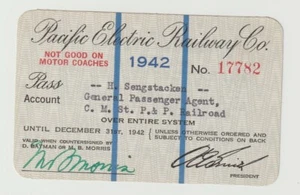 Pacific Electric Railway Co.
NOT GOOD ON
MOTOR COACHES
1942
No. 17782
Pass
-- H. Sengstacken --
Account
General Passenger Agent,
C. M. St. P. & P. Railroad
OVER ENTIRE SYSTEM
UNTIL DECEMBER 31ST, 1942
UNLESS OTHERWISE ORDERED AND
SUBJECT TO CONDITIONS ON BACK
VALID WHEN COUNTERSIGNED BY
D. BATMAN OR M. B. MORRIS
M B Morris
PRESIDENT